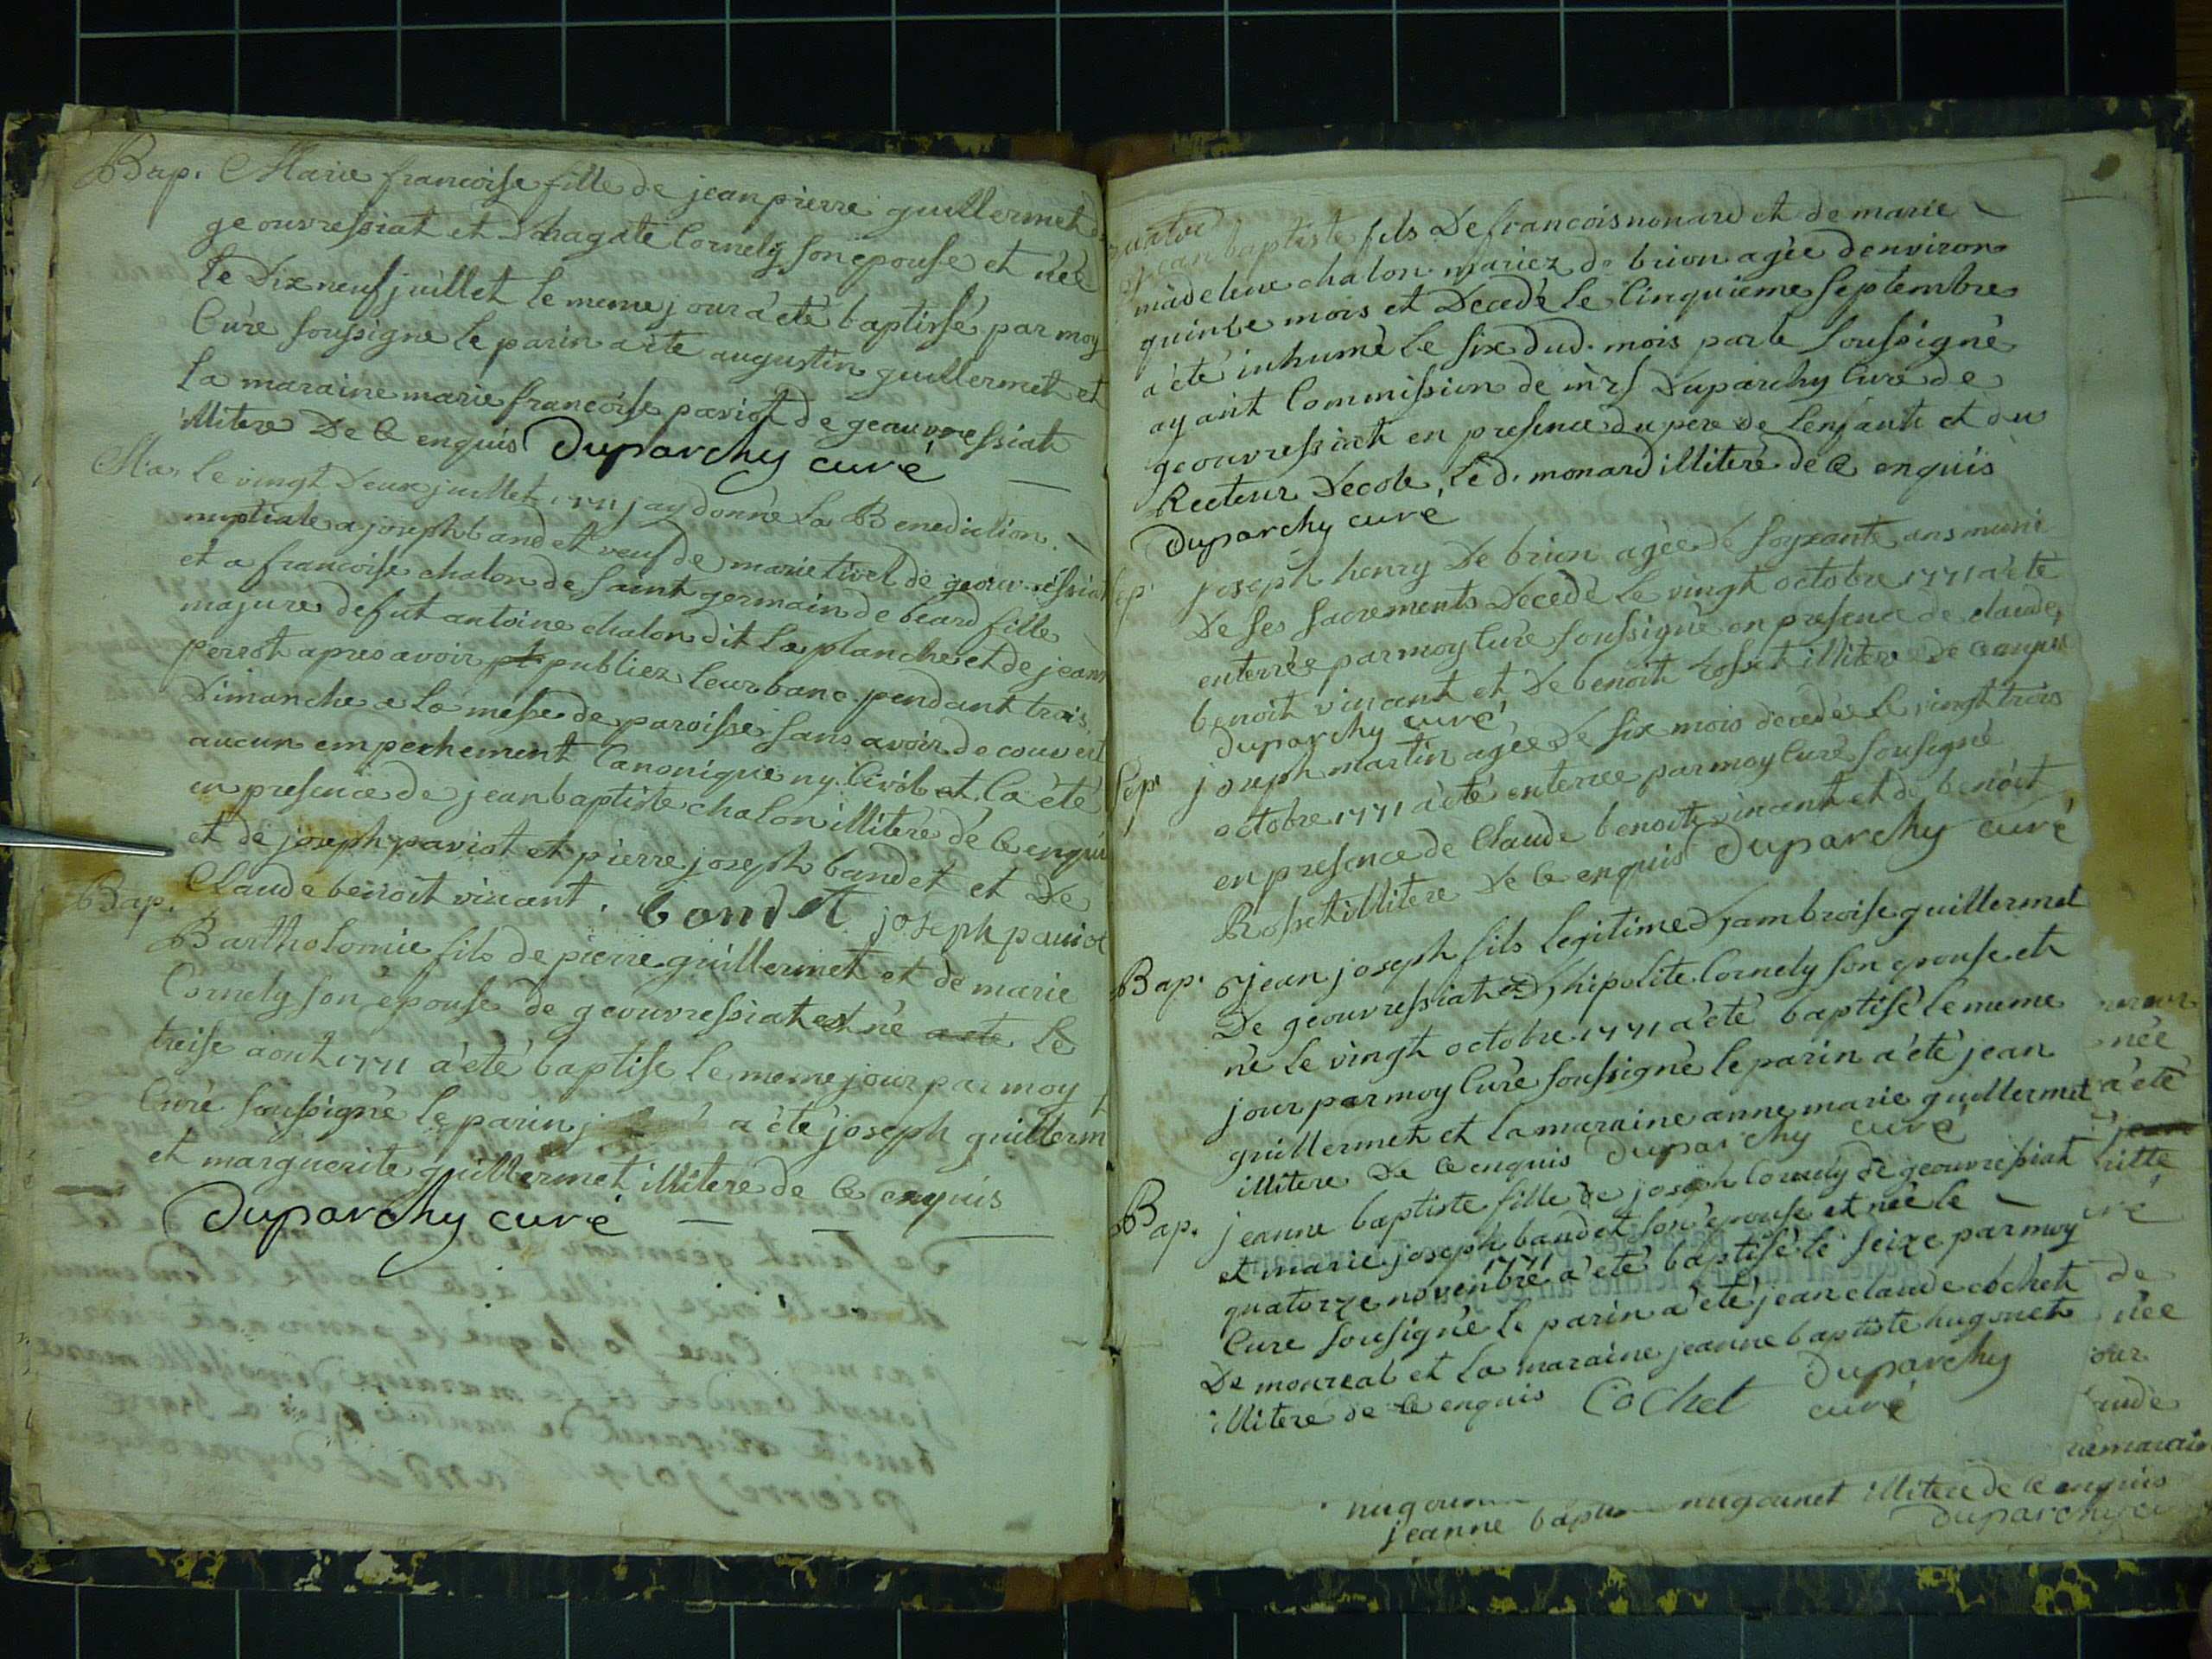 Bap. Marie francoise fille de jean pierre guillermet d
geouvressiat et d'hagate Cornely son epouse et née
le Dix neuf juillet le meme jour a été baptissé par moy
Curé soussigné le parin a été augustin guillermet et
la maraine marie francoise paviot de geauvressiat
illitere De ce enquis Duparchy curé
Ma. le vingt Deux juillet 1771 jay donné la Benediction
nuptiale a joseph bandet veuf de marie tivel de geouvressiat
et a francoise chalon de saint germain de beard fille
majure de fut antoine chalon dit la planche et de jeann
perrot apres avoir pt publiez leur banc pendant trois
Dimanche a la messe de paroisse sans avoir decouvert
aucun empechement Canonique ny Civil et la été
en presence de jean baptiste chalon illiteré de ce enquis
et de joseph paviot et pierre joseph bandet et De
Claude benoit vincent. bondet joseph paviot
Bap.
Bartholomie fils de pierre guillermet et de marie
Cornely son epouse de geouvressiat est né a été le
treise aout 1771 a été baptisé le meme jour par moy
Curé soussigné le parin j a été joseph guillerm
et marguerite guillermet illitere de ce enquis
Duparchy curé
jean baptiste fils De francois monard et de marie
madelene chalon mariez de brion agée d'environ
quinze mois et Decedé le Cinquieme septembre
a été inhumé le six dud. mois par le soussigné
ayant Commission de mrs Duparchy Curé de
geouvressiat en presence du pere de l'enfant et du
Recteur Decole, led. monard illiteré de ce enquis
Duparchy curé
Sep. joseph henry De brion agée de soyxante ans muni
De ses sacrements Decedé le vingt octobre 1771 a été
enterrée par moy Curé soussigné en presence de claude
benoit vincent et De benoit Rosset illitere De ce enquis
duparchy curé
Sep. joseph martin agée de six mois decedée le vingt trois
octobre 1771 a été enterree par moy Curé sousigné
en presence de Claude benoit vincent et de benoit
Rosset illitere De ce enquis Duparchy curé
Bap. jean joseph fils legitime d'ambroise guillermet
De geouvressiat et d'hipolite Cornely son epouse et
né le vingt octobre 1771 a été baptisé le meme
jour par moy Curé soussigné le parin a été jean
guillermet et la maraine anne marie guillermet
illitere De ce enquis Duparchy curé
Bap. jeanne baptiste fille de joseph Cornely de geouvressiat
et marie joseph bandet son epouse et née le
quatorze novembre 1771 a été baptisé le seize par moy
Cure sousigné le parin a été jean claude cochet
De monreal et la maraine jeanne baptiste hugonet
illiteré de ce enquis Cochet Duparchy
curé
née
a été
jean
de
née
our
aude
jeanne bapti hugounet illitere de ce enquis
Duparchy cu